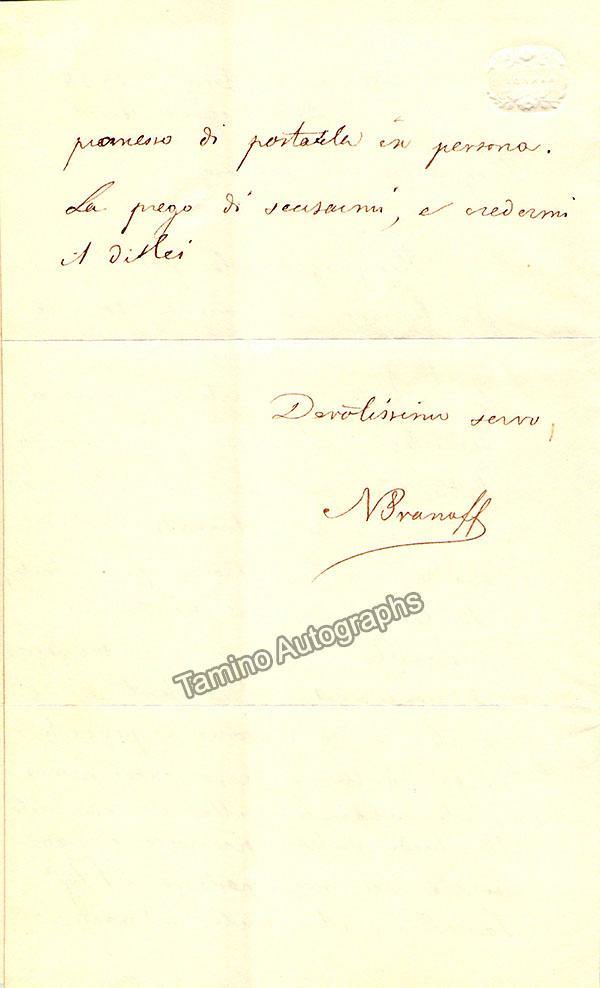 promesso di portarla in persona.
La prego di scusarmi, e credermi
il di Lei
Devotissimo servo,
Tamino Autographs